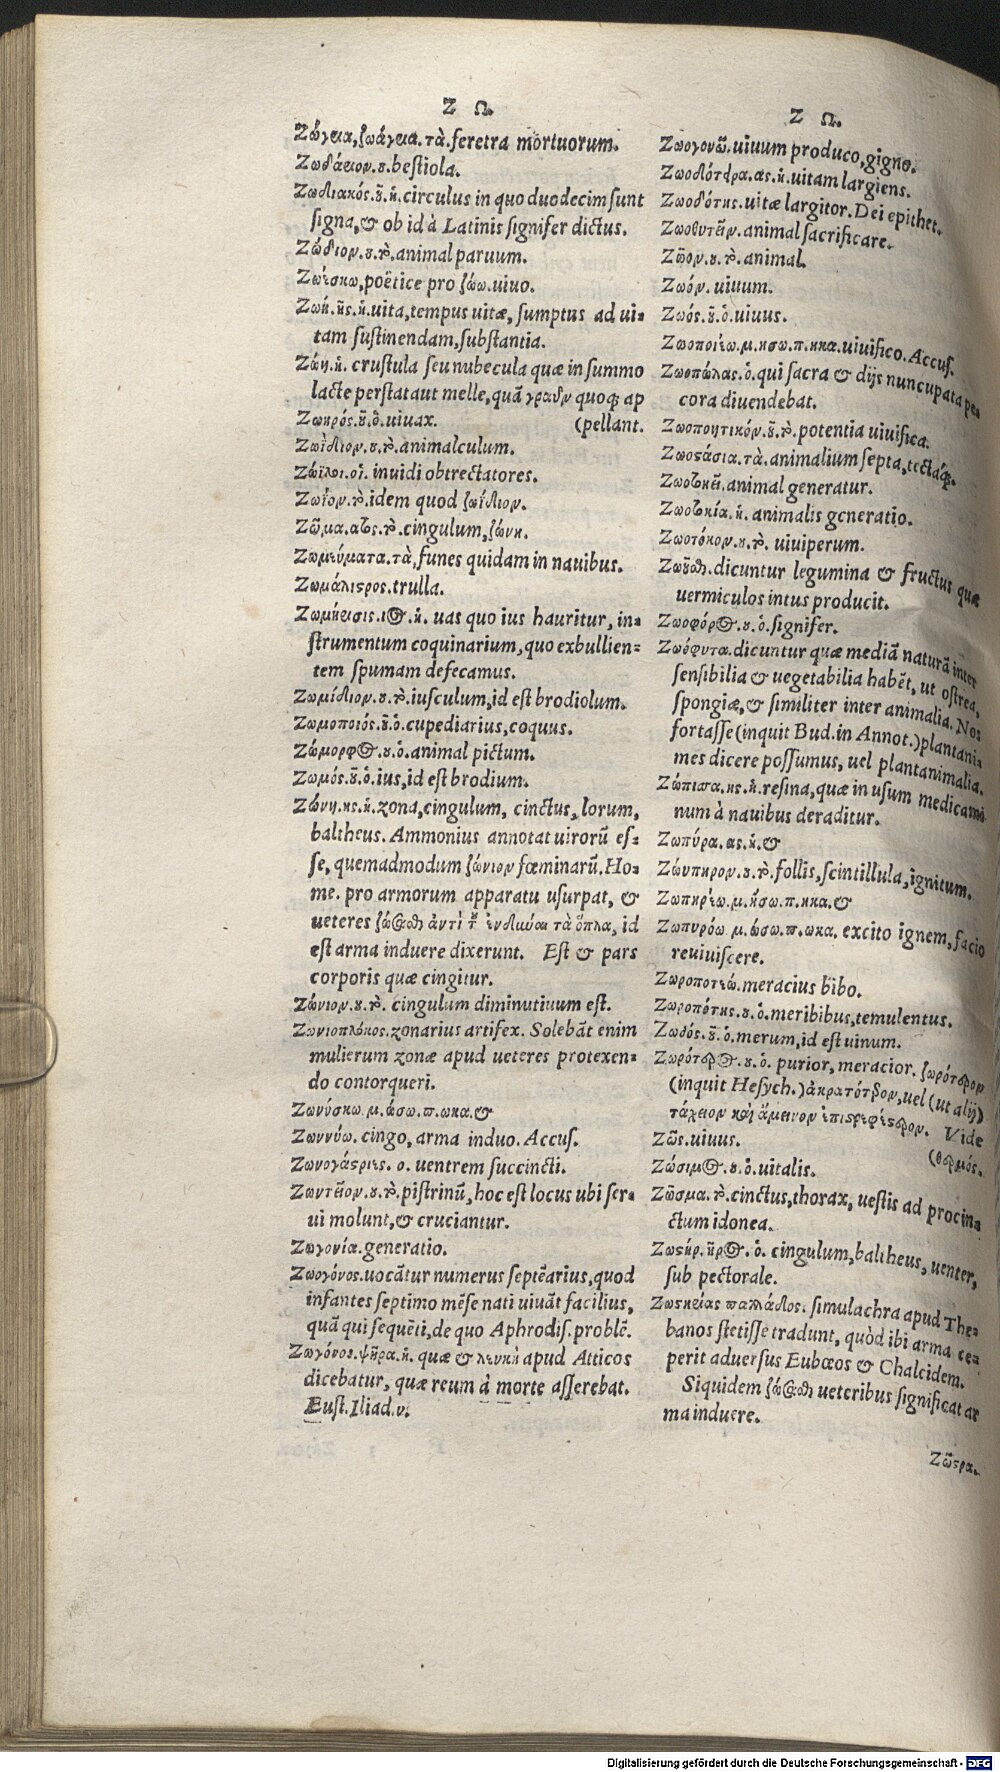 Ζ Ω.
Ζώγεια, ζωάγεια. τὰ. feretra mortuorum.
Ζωδάριον. ου. bestiola.
Ζωδιακός. οῦ. ὁ. circulus in quo duodecim sunt
signa, & ob id à Latinis signifer dictus.
Ζώδιον. ου. τὸ. animal paruum.
Ζωΐσκω, poëtice pro ζώω. uiuo.
Ζωή. ῆς. ἡ. uita, tempus uitæ, sumptus ad ui-
tam sustinendam, substantia.
Ζώη. ἡ. crustula seu nubecula quæ in summo
lacte perstat aut melle, quã γραῦν quoq; ap
Ζωηρός. οῦ. ὁ. uiuax. (pellant.
Ζωΐδιον. ου. τὸ. animalculum.
Ζώϊλοι. οἱ. inuidi obtrectatores.
Ζωΐον. τὸ. idem quod ζωΐδιον.
Ζῶμα. ατος. τὸ. cingulum, ζώνη.
Ζωμεύματα. τὰ, funes quidam in nauibus.
Ζωμάλιστρος. trulla.
Ζωμήρυσις. ιος. ἡ. uas quo ius hauritur, in-
strumentum coquinarium, quo exbullien-
tem spumam defecamus.
Ζωμίδιον. ου. τὸ. iusculum, id est brodiolum.
Ζωμοποιός. οῦ. ὁ. cupediarius, coquus.
Ζώμορφος. ου. ὁ. animal pictum.
Ζωμός. οῦ. ὁ. ius, id est brodium.
Ζώνη. ης. ἡ. zona, cingulum, cinctus, lorum,
baltheus. Ammonius annotat uirorũ es-
se, quemadmodum ζώνιον fœminarũ. Ho-
me. pro armorum apparatu usurpat, &
ueteres ζώσασθαι ἀντὶ τοῦ ἐνδῦσαι τὰ ὅπλα, id
est arma induere dixerunt. Est & pars
corporis quæ cingitur.
Ζώνιον. ου. τὸ. cingulum diminutiuum est.
Ζωνιοπλόκος. zonarius artifex. Solebãt enim
mulierum zonæ apud ueteres protexen-
do contorqueri.
Ζωνύσκω. μ. ώσω. π. ωκα. &
Ζωννύω. cingo, arma induo. Accus.
Ζωνογάστριες. ο. uentrem succincti.
Ζωντεῖον. ου. τὸ. pistrinũ, hoc est locus ubi ser-
ui molunt, & cruciantur.
Ζωγονία. generatio.
Ζωογόνος. uocãtur numerus septẽarius, quod
infantes septimo mẽse nati uiuãt facilius,
quã qui sequẽti, de quo Aphrodis. problẽ.
Ζωγόνος. ψῆρα. ἡ. quæ & λευκὴ apud Atticos
dicebatur, quæ reum à morte asserebat.
Eust. Iliad. ν.
Ζ Ω.
Ζωογονῶ. uiuum produco, gigno.
Ζωοδότειρα. ας. ἡ. uitam largiens.
Ζωοδότης. uitæ largitor. Dei epithet.
Ζωοθυτεῖν. animal sacrificare.
Ζῶον. ου. τὸ. animal.
Ζωόν. uiuum.
Ζωός. οῦ. ὁ. uiuus.
Ζωοποιέω. μ. ησω. π. ηκα. uiuifico. Accus.
Ζωοπώλας. ὁ. qui sacra & dijs nuncupata pe-
cora diuendebat.
Ζωοποητικόν. οῦ. τὸ. potentia uiuifica.
Ζωοστάσια. τὰ. animalium septa, tectáq;.
Ζωοτοκεῖ. animal generatur.
Ζωοτοκία. ἡ. animalis generatio.
Ζωοτόκον. ου. τὸ. uiuiperum.
Ζωοῦσθαι. dicuntur legumina & fructus quæ
uermiculos intus producit.
Ζωοφόρος. ου. ὁ. signifer.
Ζωόφυτα. dicuntur quæ mediã naturã inter
sensibilia & uegetabilia habẽt, ut ostrea,
spongiæ, & similiter inter animalia. Nos
fortasse (inquit Bud. in Annot.) plantani-
mes dicere possumus, uel plantanimalia.
Ζώπισα. ης. ἡ. resina, quæ in usum medicami
num à nauibus deraditur.
Ζωπύρα. ας. ἡ. &
Ζώυπηρον. ου. τὸ. follis, scintillula, ignitum.
Ζωπηρέω. μ. ήσω. π. ηκα. &
Ζωπυρόω. μ. ώσω. π. ωκα. excito ignem, facio
reuiuiscere.
Ζωροποτέω. meracius bibo.
Ζωροπότης. ου. ὁ. meribibus, temulentus.
Ζωδός. οῦ. ὁ. merum, id est uinum.
Ζωρότερος. ου. ὁ. purior, meracior. ζωρότερον
(inquit Hesych.) ἀκρατότερον, uel (ut alij)
τάχειον καὶ ἄμεινον ἐπιστρεφέστερον. Vide
(θερμός.
Ζῶς. uiuus.
Ζώσιμος. ου. ὁ. uitalis.
Ζῶσμα. τὸ. cinctus, thorax, uestis ad procin-
ctum idonea.
Ζωστήρ. ῆρος. ὁ. cingulum, baltheus, uenter,
sub pectorale.
Ζωστηρίας παλλάδος. simulachra apud The-
banos stetisse tradunt, quòd ibi arma ce-
perit aduersus Eubœos & Chalcidem.
Siquidem ζώσασθαι ueteribus significat ar
ma induere.
Ζῶστρα.